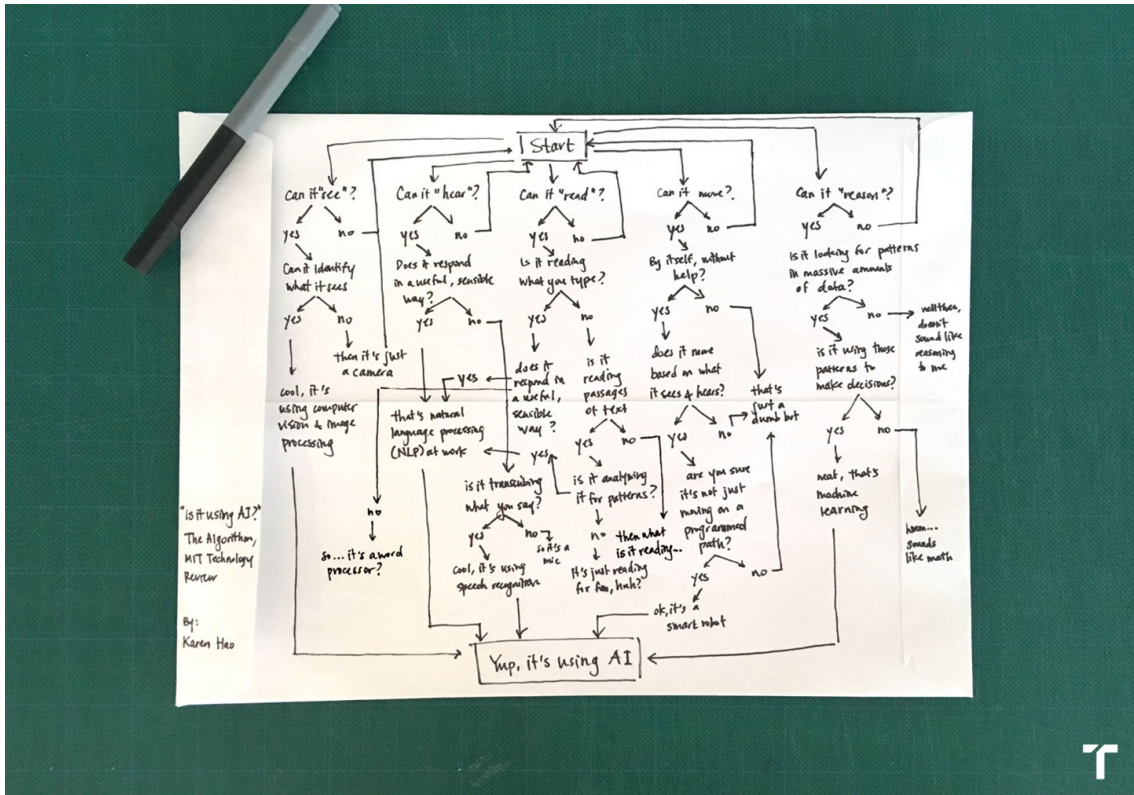 Start
Can it "see"?
yes
no
Can it identify
what it sees
yes
no
then it's just
a camera
cool, it's
using computer
vision & image
processing
Can it "hear"?
yes
no
Does it respond
in a useful, sensible
way?
yes
no
that's natural
language processing
(NLP) at work
is it transcribing
what you say?
yes
no
so it's a
mic
cool, it's using
speech recognition
Can it "read"?
yes
no
Is it reading
what you type?
yes
no
does it
respond in
a useful,
sensible
way?
yes
no
so... it's a word
processor?
is it
reading
passages
of text
yes
no
is it analyzing
it for patterns?
yes
no
then what
is it reading...
It's just reading
for fun, huh?
Can it move?
yes
no
By itself, without
help?
yes
no
does it move
based on what
it sees & hears?
yes
no
that's
just a
dumb bot
are you sure
it's not just
moving on a
programmed
path?
yes
no
ok, it's a
smart robot
Can it "reason"?
yes
no
Is it looking for patterns
in massive amounts
of data?
yes
no
well then,
doesn't
sound like
reasoning
to me
is it using those
patterns to
make decisions?
yes
no
neat, that's
machine
learning
hmm...
sounds
like math
Yup, it's using AI
"Is it using AI?"
The Algorithm,
MIT Technology
Review
By:
Karen Hao
T